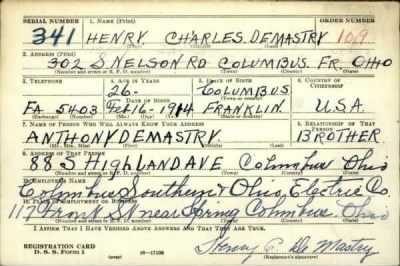 SERIAL NUMBER 1. NAME (Print)
341 HENRY CHARLES DEMASTRY 109
2. ADDRESS (Print)
302 S. NELSON RD COLUMBUS. FR. OHIO
(Number and street or R. F. D. number) (Town) (County) (State)
3. TELEPHONE 4. AGE IN YEARS 5. PLACE OF BIRTH 6. COUNTRY OF CITIZENSHIP
26. COLUMBUS
DATE OF BIRTH (Town or county)
FA 5403 Feb 16-1914 FRANKLIN. U.S.A.
(Exchange) (Number) (Mo.) (Day) (Yr.) (State or country)
7. NAME OF PERSON WHO WILL ALWAYS KNOW YOUR ADDRESS 8. RELATIONSHIP OF THAT PERSON
ANTHONY DEMASTRY. BROTHER
(Mr., Mrs., Miss) (First) (Middle) (Last)
9. ADDRESS OF THAT PERSON
88 S HIGHLAND AVE Columbus Ohio
(Number and street or R. F. D. number) (Town) (County) (State)
10. EMPLOYER'S NAME
Columbus Southern & Ohio Electric Co.
11. PLACE OF EMPLOYMENT OR BUSINESS
117 Front St near Spring Columbus Ohio
(Number and street or R. F. D. number) (Town) (County) (State)
I AFFIRM THAT I HAVE VERIFIED ABOVE ANSWERS AND THAT THEY ARE TRUE.
REGISTRATION CARD
D. S. S. Form 1 16-17105
Henry C. De Mastry
(Registrant's signature)